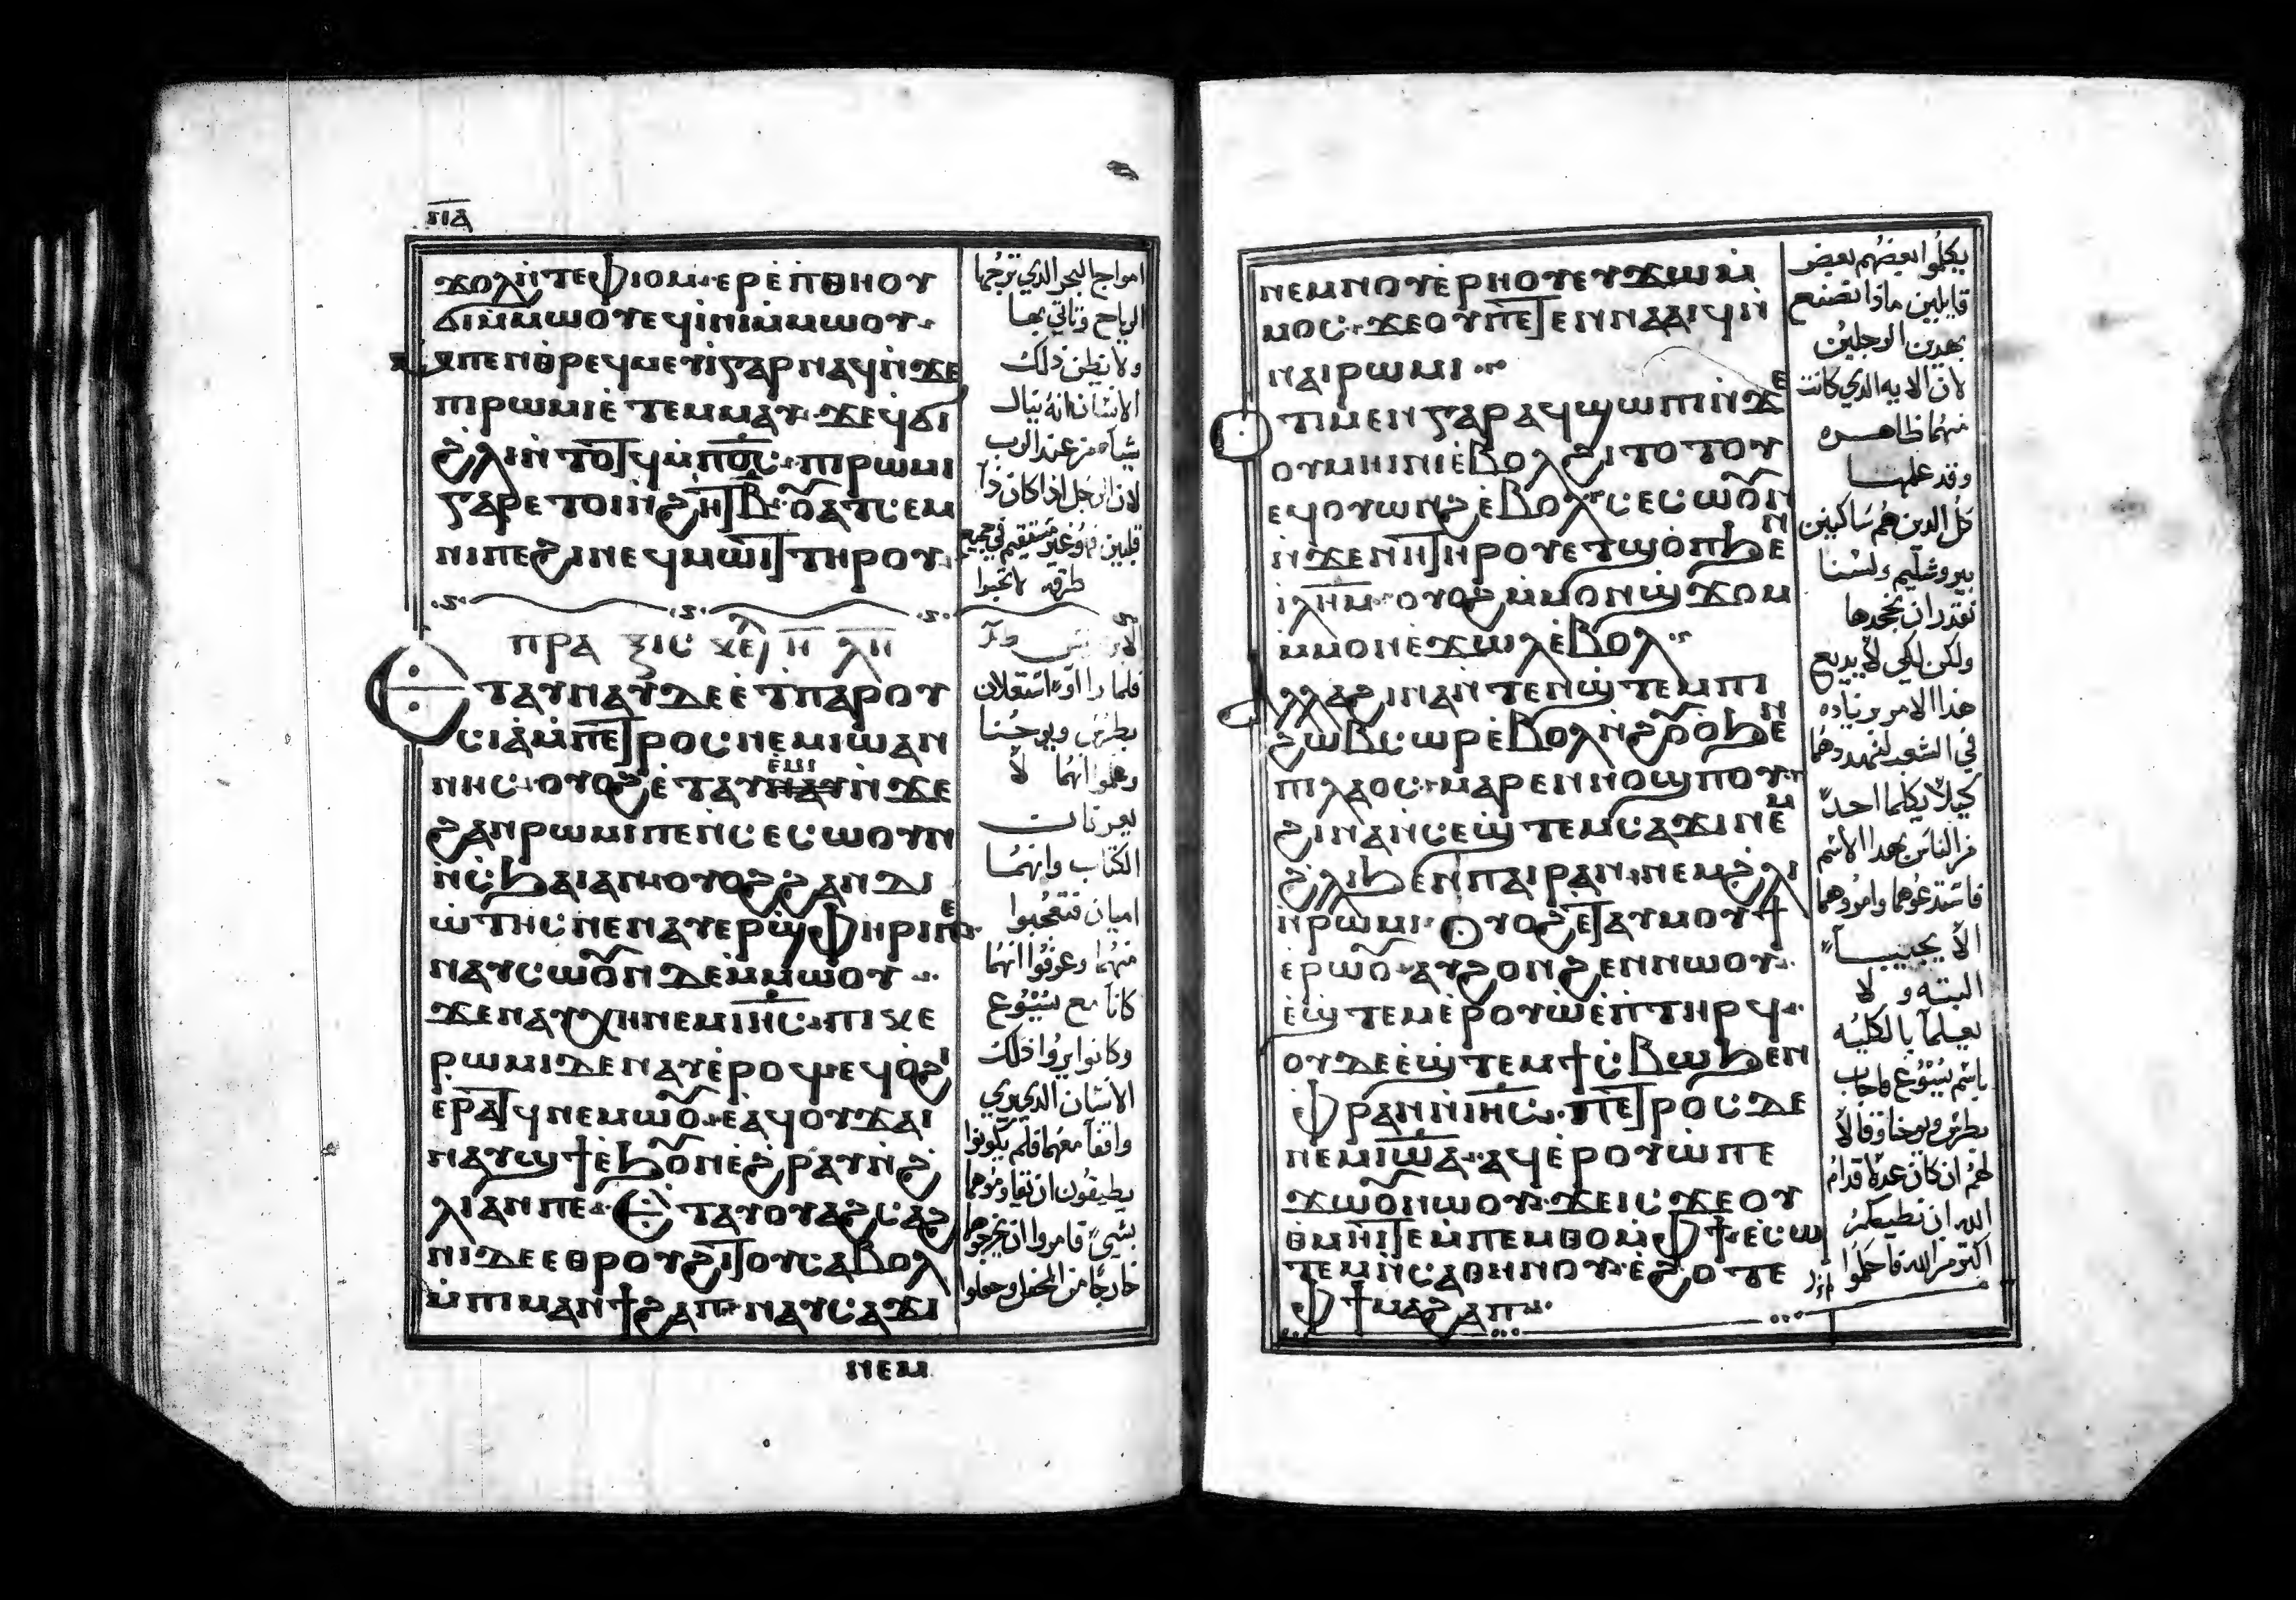 ⲡⲁ
ϫⲟⲗ ⲛ̀ⲧⲉ ⲫⲓⲟⲙ· ⲉⲣⲉ ⲡ̀ⲑⲏⲟⲩ
ϭⲓ ⲙ̀ⲙⲱⲟⲩ ⲉϥⲓⲛⲓ ⲙ̀ⲙⲱⲟⲩ·
ⲙ̀ⲡⲉⲛⲑⲣⲉϥⲙⲉⲩⲓ ⲅⲁⲣ ⲛⲁϥ ⲛ̀ϫⲉ
ⲡⲓⲣⲱⲙⲓ ⲉ̀ⲧⲉⲙⲙⲁⲩ· ϫⲉ ϥϭⲓ
ϩⲗⲓ ⲛ̀ⲧⲟⲧϥ ⲙ̀ⲡⲟ̅ⲥ̅· ⲡⲓⲣⲱⲙⲓ
ⲅⲁⲣ ⲉⲧⲟⲓ ⲛ̀ϩⲏⲧ ⲃ̅ ⲟⲩⲁⲧⲥⲉⲙ
ⲛⲓ ⲡⲉ ϩⲓ ⲛⲉϥⲙⲱⲓⲧ ⲧⲏⲣⲟⲩ·
ⲡⲣⲁⲝⲓⲥ ⲕⲉⲫ ⲏ̅ ⲗⲏ
Ⲉⲧⲁⲩⲛⲁⲩ ⲇⲉ ⲉ̀ⲧⲡⲁⲣⲟⲩ
ⲥⲓⲁ ⲙ̀ⲡⲉⲧⲣⲟⲥ ⲛⲉⲙ ⲓⲱⲁⲛ
ⲛⲏⲥ· ⲟⲩⲟϩ ⲉ̀ⲧⲁⲩⲉⲙⲓ ⲛ̀ϫⲉ
ϩⲁⲛⲣⲱⲙⲓ ⲡⲉ ⲛ̀ⲥⲉⲥⲱⲟⲩⲛ
ⲛ̀ⲥϧⲁⲓ ⲁⲛ· ⲟⲩⲟϩ ϩⲁⲛ ⲇⲓ
ⲱⲧⲏⲥ ⲛⲉ ⲛⲁⲩⲉⲣϣⲫⲏⲣⲓ ⲡⲉ·
ⲛⲁⲩⲥⲱⲟⲩⲛ ⲇⲉ ⲙ̀ⲙⲱⲟⲩ·
ϫⲉ ⲛⲁⲩⲭⲏ ⲛⲉⲙ ⲓⲏ̅ⲥ̅· ⲡⲓⲕⲉ
ⲣⲱⲙⲓ ⲇⲉ ⲛⲁⲩⲉⲣⲟϥ ⲉϥⲟϩⲓ
ⲉ̀ⲣⲁⲧϥ ⲛⲉⲙⲱⲟⲩ· ⲉⲁϥⲟⲩϫⲁⲓ
ⲛⲁⲩϣϯ ⲉ̀ϧⲟⲩⲛ ⲉ̀ϩⲣⲁⲩ ⲛ̀ϩ
ⲗⲓ ⲁⲛ ⲡⲉ· Ⲉⲧⲁⲩⲟⲩⲁϩⲥⲁϩ
ⲛⲓ ⲇⲉ ⲉⲑⲣⲟⲩϩⲓⲧⲟⲩ ⲥⲁⲃⲟⲗ
ⲙ̀ⲡⲓⲙⲁⲛϯϩⲁⲡ· ⲛⲁⲩⲥⲁϫⲓ
ⲛⲉⲙ
امواج البحر الذي تزجها
الرياح وتاتي بها
ولا يظن ذلك
الانسان انه ينال
شيا من عند الرب
لان الرجل اذا كان ذا
قلبين فهو غير مستقيم في جميع
طرقه
فلما راوا استعلان
بطرس ويوحنا
وعلموا انهما لا
يعرفان
الكتاب وانهما
اميان فتعجبوا
منهما وعرفوا انهما
كانا مع يسوع
وكانوا يروا ذلك
الانسان الذي بري
واقفا معهما فلم يكونوا
يطيقون ان يقاوموهما
بشي فامروا ان يخرجوهما
خارجا من المحفل وجعلوا
ⲛⲉⲙ ⲛⲟⲩⲉⲣⲏⲟⲩ ⲉⲩϫⲱ ⲙ̀
ⲙⲟⲥ· ϫⲉ ⲟⲩ ⲡⲉⲧⲉⲛⲛⲁⲁⲓϥ ⲛ̀
ⲛⲁⲓⲣⲱⲙⲓ·
Ⲟⲧⲓ ⲙⲉⲛ ⲅⲁⲣ ⲁϥϣⲱⲡⲓ ⲛ̀ϫⲉ
ⲟⲩⲙⲏⲓⲛⲓ ⲉ̀ⲃⲟⲗ ϩⲓⲧⲟⲧⲟⲩ
ⲉϥⲟⲩⲱⲛϩ ⲉ̀ⲃⲟⲗ· ⲥⲉⲥⲱⲟⲩⲛ
ⲛ̀ϫⲉ ⲛⲏⲧⲏⲣⲟⲩ ⲉⲧϣⲟⲡ ϧⲉⲛ
ⲓⲗ̅ⲏ̅ⲙ̅· ⲟⲩⲟϩ ⲙ̀ⲙⲟⲛ ϣϫⲟⲙ
ⲙ̀ⲙⲟⲛ ⲉ̀ϫⲱⲗ ⲉ̀ⲃⲟⲗ·
Ⲁⲗⲗⲁ ϩⲓⲛⲁ ⲛ̀ⲧⲉⲛϣⲧⲉⲙ ⲡⲓ
ϩⲱⲃ ⲥⲱⲣ ⲉ̀ⲃⲟⲗ ⲛ̀ϩⲟⲩⲟ ϧⲉⲛ
ⲡⲓⲗⲁⲟⲥ· ⲙⲁⲣⲉⲛⲛⲟϣⲡⲟⲩ·
ϩⲓⲛⲁ ⲛ̀ⲥⲉϣⲧⲉⲙⲥⲁϫⲓ ⲛⲉⲙ
ϩⲗⲓ ϧⲉⲛ ⲡⲁⲓⲣⲁⲛ· ⲛⲉⲙ ϩⲗⲓ
ⲛ̀ⲣⲱⲙⲓ· Ⲟⲩⲟϩ ⲉⲧⲁⲩⲙⲟⲩϯ
ⲉⲣⲱⲟⲩ· ⲁⲩϩⲟⲛϩⲉⲛ ⲛⲱⲟⲩ·
ⲉ̀ϣⲧⲉⲙⲉⲣⲟⲩⲱ ⲉ̀ⲡⲧⲏⲣϥ·
ⲟⲩⲇⲉ ⲉ̀ϣⲧⲉⲙϯⲥⲃⲱ ϧⲉⲛ
ⲫⲣⲁⲛ ⲛ̀ⲓⲏ̅ⲥ̅· ⲡⲉⲧⲣⲟⲥ ⲇⲉ
ⲛⲉⲙ ⲓⲱ̅ⲁ̅· ⲁϥⲉⲣⲟⲩⲱ ⲡⲉ
ϫⲱⲟⲩ ⲛⲱⲟⲩ· ϫⲉ ⲓⲥϫⲉ ⲟⲩ
ⲑⲙⲏⲓ ⲧⲉ ⲙ̀ⲡⲉⲙⲑⲟ ⲙ̀ⲫϯ· ⲉ̀ⲥⲱ
ⲧⲉⲙ ⲛ̀ⲥⲁⲑⲏⲛⲟⲩ· ⲉ̀ϩⲟⲧⲉ
ⲫϯ ⲙⲁϩⲁⲡ·
يكلموا بعضهم بعض
قايلين ماذا نصنع
بهذين الرجلين
لان الايه الذي كانت
منهما ظاهره
وقد علمها
كل الذين هم ساكنين
بيروشليم ولسنا
نقدر ان نجحدها
ولكن لكي لا يذيع
هذا الامر بزياده
في الشعب لنهددهما
كيلا يكلما احدا
من الناس بهذا الاسم
فاستدعوهما وامروهما
الا يجيبا
البته و لا
يعلما بالكليه
باسم يسوع فاجاب
بطرس ويوحنا وقالا
لهم ان كان عدلا قدام
الله ان نطيعكم
اكتر من الله فاحكموا